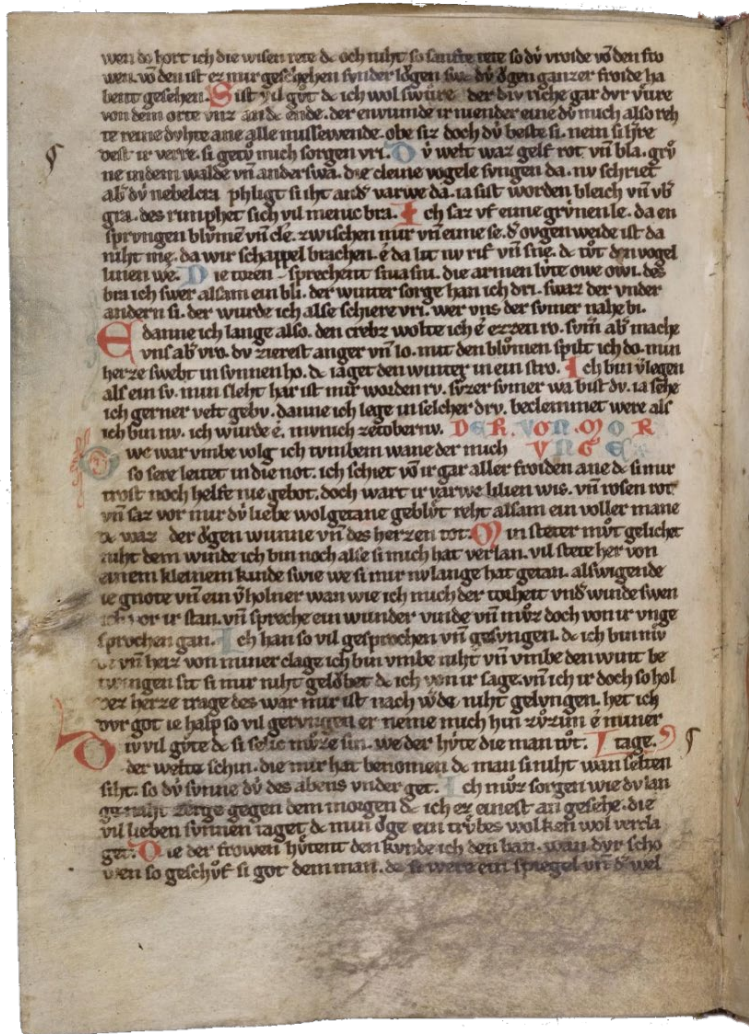 wen do hort ich die wisen rete dc och niht so sanfte tete so dv́ vroide võ den fro
wen. võ den ist ez mir geschehen synder lǒgen swc dv́ ǒgen ganzer froide ha
bent gesehen. Sist v̓il gv̊t dc ich wol swv̊re der div riche gar dvr vv̊re
von dem orte vnz an dc ende. der envunde ir niender eine dv́ mich also reh
te reine dvhte ane alle missewende. obe siz doch dv́ beste si. nein si h̓re
dest ir verre. si getv̊ mich sorgen vri. Dv́ welt waz gelf rot vñ bla. grv̊
ne indem walde vñ anderswa. die cleine vogele svngen da. nv schriet
ab̓ dv́ nebelcra phligt si iht and̓ varwe da. ia sist worden bleich vñ vb̓
gra. des rimphet sich vil menic bra. Ich saz vf eime grv̊nen le. da en
sprvngen blv̊men vñ cle. zwischen mir vñ eime se. d̓ ovgen weide ist da
niht me. da wir schappel brachen. e da lit nv rif vñ sne. dc tv̊t den vogel
linen we. Die toren sprechent snia sni. die armen lv́te owe owi. des
bin ich swer alsam ein bli. der winter sorge han ich dri. swaz der vnder
andern si. der wurde ich alse schiere vri. wer vns der svmer nahe bi.
E danne ich lange also. den crebz wolte ich e ezzen ro. svm̄ ab̓ mache
vns ab̓ vro. dv zierest anger vñ lo. mit den blv̊men spilt ich do. min
herze swebt in svnnen ho. dc iaget den winter in ein stro. Ich bin v̓legen
als ein sv. min sleht har ist mir worden rv. sv̊zer svmer wa bist dv. ia sehe
ich gerner velt gebv. danne ich lege in selcher drv. beclemmet were als
ich bin nv. ich wurde e. mvnich zetoberlv. DER. VON. MOR
Owe war vmbe volg ich tvmbem wane der mich VNGE
so sere leitet in die not. ich schiet võ ir gar aller froiden ane dc si mir
trost noch helfe nie gebot. doch wart ir varwe lilien wis. vñ rosen rot
vñ saz vor mir dv́ liebe wolgetane geblv̊t reht alsam ein voller mane
dc waz der ǒgen wunne vñ des herzen tot. Min steter mv̊t gelichet
niht dem winde ich bin noch alse si mich hat verlan. vil stete her von
einem kleinem kinde swie we si mir nv lange hat getan. alswigende
ie gnote vñ ein v̓holner wan wie ich mich der torheit vnd̓ winde swen
ich vor ir stan. vñ spreche ein wunder vinde vñ mv̊z doch von ir vnge
sprochen gan. Ich han so vil gesprochen vñ gesvngen. dc ich bin mv̊
de vñ heiz von miner clage ich bin vmbe niht vñ vmbe den wint be
twungen sit si mir niht gelǒbet dc ich von ir sage. vñ ich ir doch so hol
dez herze trage des war mir ist nach w̓de niht gelvngen. het ich
dvr got ie halp so vil gervngen er neme mich hin zv̊zim e miner
Div vil gv̊te dc si selic mv̊ze sin. we der hv̊te die man tv̊t. tage.
der welte schin. die mir hat benomen dc man si niht wan selten
siht. so dv́ svnne dv́ des abens vnder get. Ich mv̊z sorgen wie dv́ lan
ge naht zerge gegen dem morgen dc ich ez einest an gesehe. die
vil lieben svnnen iaget dc min ǒge ein trv̊bes wolken wol verkla
get. Die der frowen hv̊tent den kvnde ich den ban. wan dvr scho
wen so geschv̊f si got dem man. dc si were ein spiegel vñ d̓ wel